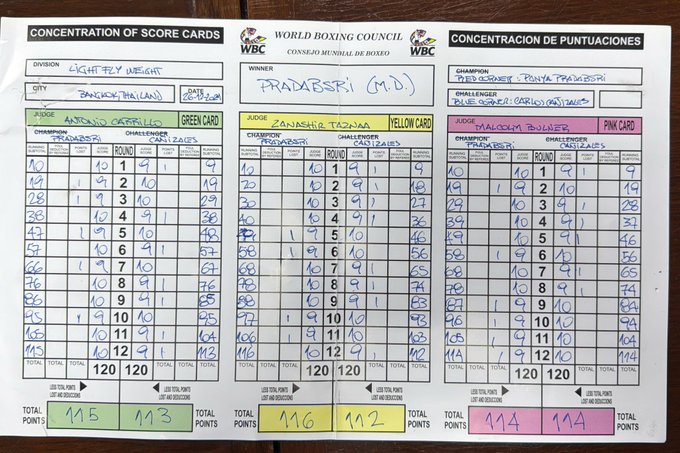 CONCENTRATION OF SCORE CARDS
DIVISION
LIGHT FLY WEIGHT
CITY
BANGKOK, THAILAND
DATE
WBC
WORLD BOXING COUNCIL
CONSEJO MUNDIAL DE BOXEO
WBC
WINNER
PRADABSRI (M.D.)
CONCENTRACION DE PUNTUACIONES
CHAMPION
RED CORNER : PONYA PRADABSRI
CHALLENGER
BLUE CORNER : CARLOS CAÑIZALES
JUDGE
ANTONIO CARRILLO GREEN CARD
CHAMPION CHALLENGER
PRADABSRI CAÑIZALES
RUNNING SUBTOTAL FOUL DEDUCTION BY REFEREE POINTS LOST JUDGE SCORE ROUND JUDGE SCORE POINTS LOST FOUL DEDUCTION BY REFEREE RUNNING SUBTOTAL
10 10 1 9 1 9
19 1 9 2 10 19
28 1 9 3 10 29
38 10 4 9 1 38
47 1 9 5 10 48
57 10 6 9 1 57
66 1 9 7 10 67
76 10 8 9 1 76
86 10 9 9 1 85
95 1 9 10 10 95
105 10 11 9 1 104
115 10 12 9 1 113
TOTAL TOTAL TOTAL 120 120 TOTAL TOTAL TOTAL
LESS TOTAL POINTS LOST AND DEDUCCIONS LESS TOTAL POINTS LOST AND DEDUCCIONS
TOTAL POINTS 115 113 TOTAL POINTS
JUDGE
ZANASHIR TAZNAA YELLOW CARD
CHAMPION CHALLENGER
PRADABSRI CAÑIZALES
RUNNING SUBTOTAL FOUL DEDUCTION BY REFEREE POINTS LOST JUDGE SCORE ROUND JUDGE SCORE POINTS LOST FOUL DEDUCTION BY REFEREE RUNNING SUBTOTAL
10 10 1 9 1 9
20 10 2 9 1 18
30 10 3 9 1 27
40 10 4 9 1 36
49 1 9 5 10 46
58 1 9 6 10 56
68 10 7 9 1 65
78 10 8 9 1 74
88 10 9 9 1 83
97 1 9 10 10 93
106 1 9 11 10 103
116 10 12 9 1 112
TOTAL TOTAL TOTAL 120 120 TOTAL TOTAL TOTAL
LESS TOTAL POINTS LOST AND DEDUCCIONS LESS TOTAL POINTS LOST AND DEDUCCIONS
116 112 TOTAL POINTS
JUDGE
MALCOLM BULNER PINK CARD
CHAMPION CHALLENGER
PRADABSRI CAÑIZALES
RUNNING SUBTOTAL FOUL DEDUCTION BY REFEREE POINTS LOST JUDGE SCORE ROUND JUDGE SCORE POINTS LOST FOUL DEDUCTION BY REFEREE RUNNING SUBTOTAL
10 10 1 9 1 9
19 1 9 2 10 19
29 10 3 9 1 28
39 10 4 9 1 37
49 10 5 9 1 46
58 1 9 6 10 56
68 10 7 9 1 65
78 10 8 9 1 74
87 1 9 9 10 84
96 1 9 10 10 94
105 1 9 11 10 104
114 1 9 12 10 114
TOTAL TOTAL TOTAL 120 120 TOTAL TOTAL TOTAL
LESS TOTAL POINTS LOST AND DEDUCCIONS LESS TOTAL POINTS LOST AND DEDUCCIONS
114 114 TOTAL POINTS